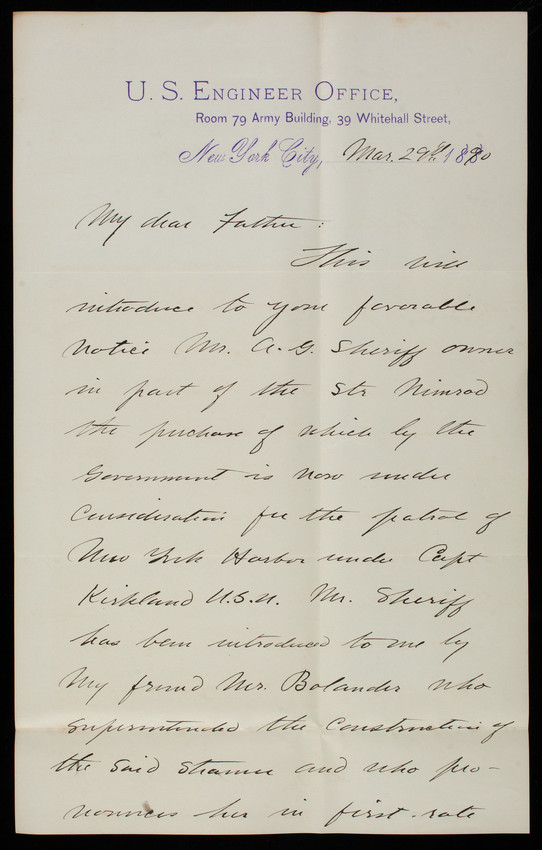 U. S. Engineer Office,
Room 79 Army Building, 39 Whitehall Street,
New York City, Mar. 29th 1890
My dear Father:
This will
introduce to your favorable
notice Mr. A. G. Sheriff owner
in part of the Str Nimrod
the purchase of which by the
Government is now under
Consideration for the patrol of
New York Harbor under Capt
Kirkland U.S.N. Mr. Sheriff
has been introduced to me by
my friend Mr. Bolander who
superintended the Construction of
the said steamer and who pro-
nounces her in first-rate